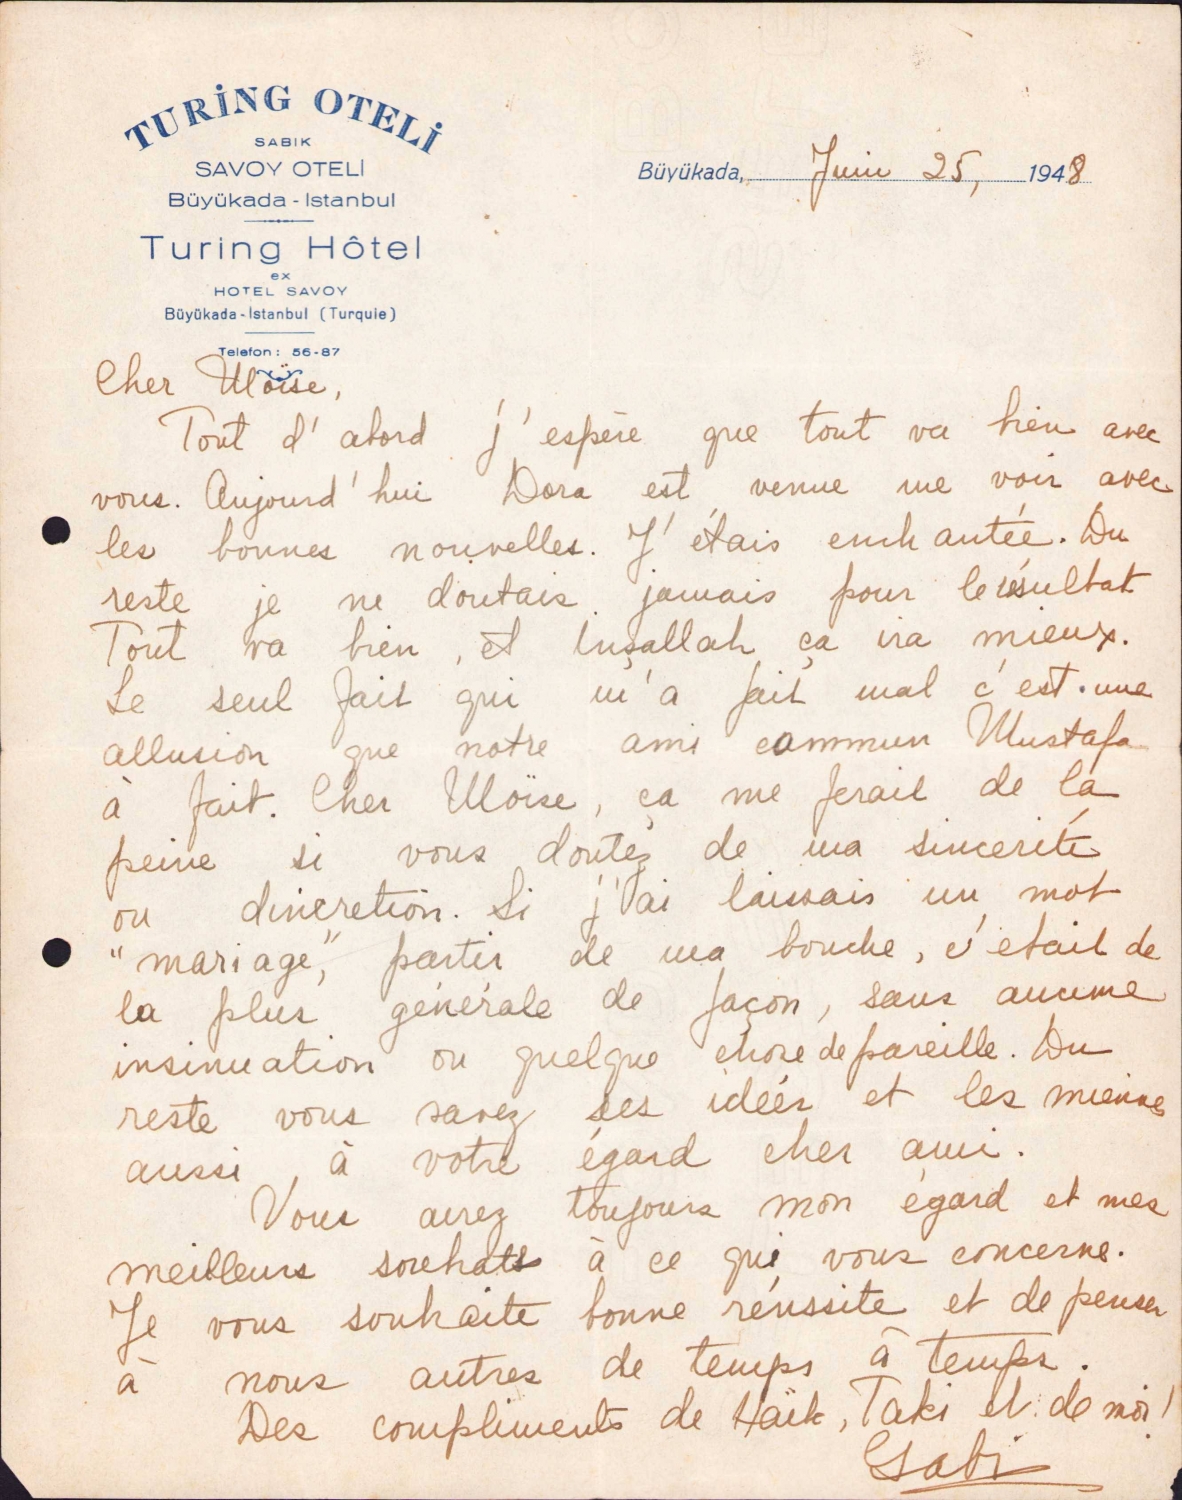 TURİNG OTELİ
SABIK
SAVOY OTELİ
Büyükada - Istanbul
Turing Hôtel
ex
HOTEL SAVOY
Büyükada - İstanbul (Turquie)
Telefon : 56-87
Büyükada, Juin 25, 1948
Cher Moïse,
Tout d'abord j'espère que tout va bien avec
vous. Aujourd'hui Dora est venue me voir avec
les bonnes nouvelles. J'étais enchantée. Du
reste je ne doutais jamais pour le résultat
Tout va bien, et Inşallah ça ira mieux.
Le seul fait qui m'a fait mal c'est une
allusion que notre ami commun Mustafa
à fait. Cher Moïse, ça me ferait de la
peine si vous doutez de ma sincerité
ou discretion. Si j'ai laissais un mot
"mariage," partir de ma bouche, c'etait de
la plus générale de façon, sans aucune
insinuation ou quelque chose de pareille. Du
reste vous savez ses idéés et les miennes
aussi, à votre égard cher ami.
Vous aurez toujours mon égard et mes
meilleurs souhaits à ce qui vous concerne.
Je vous souhaite bonne réussite et de penser
à nous autres de temps à temps.
Des compliments de Haïk, Taki et de moi!
Gabi